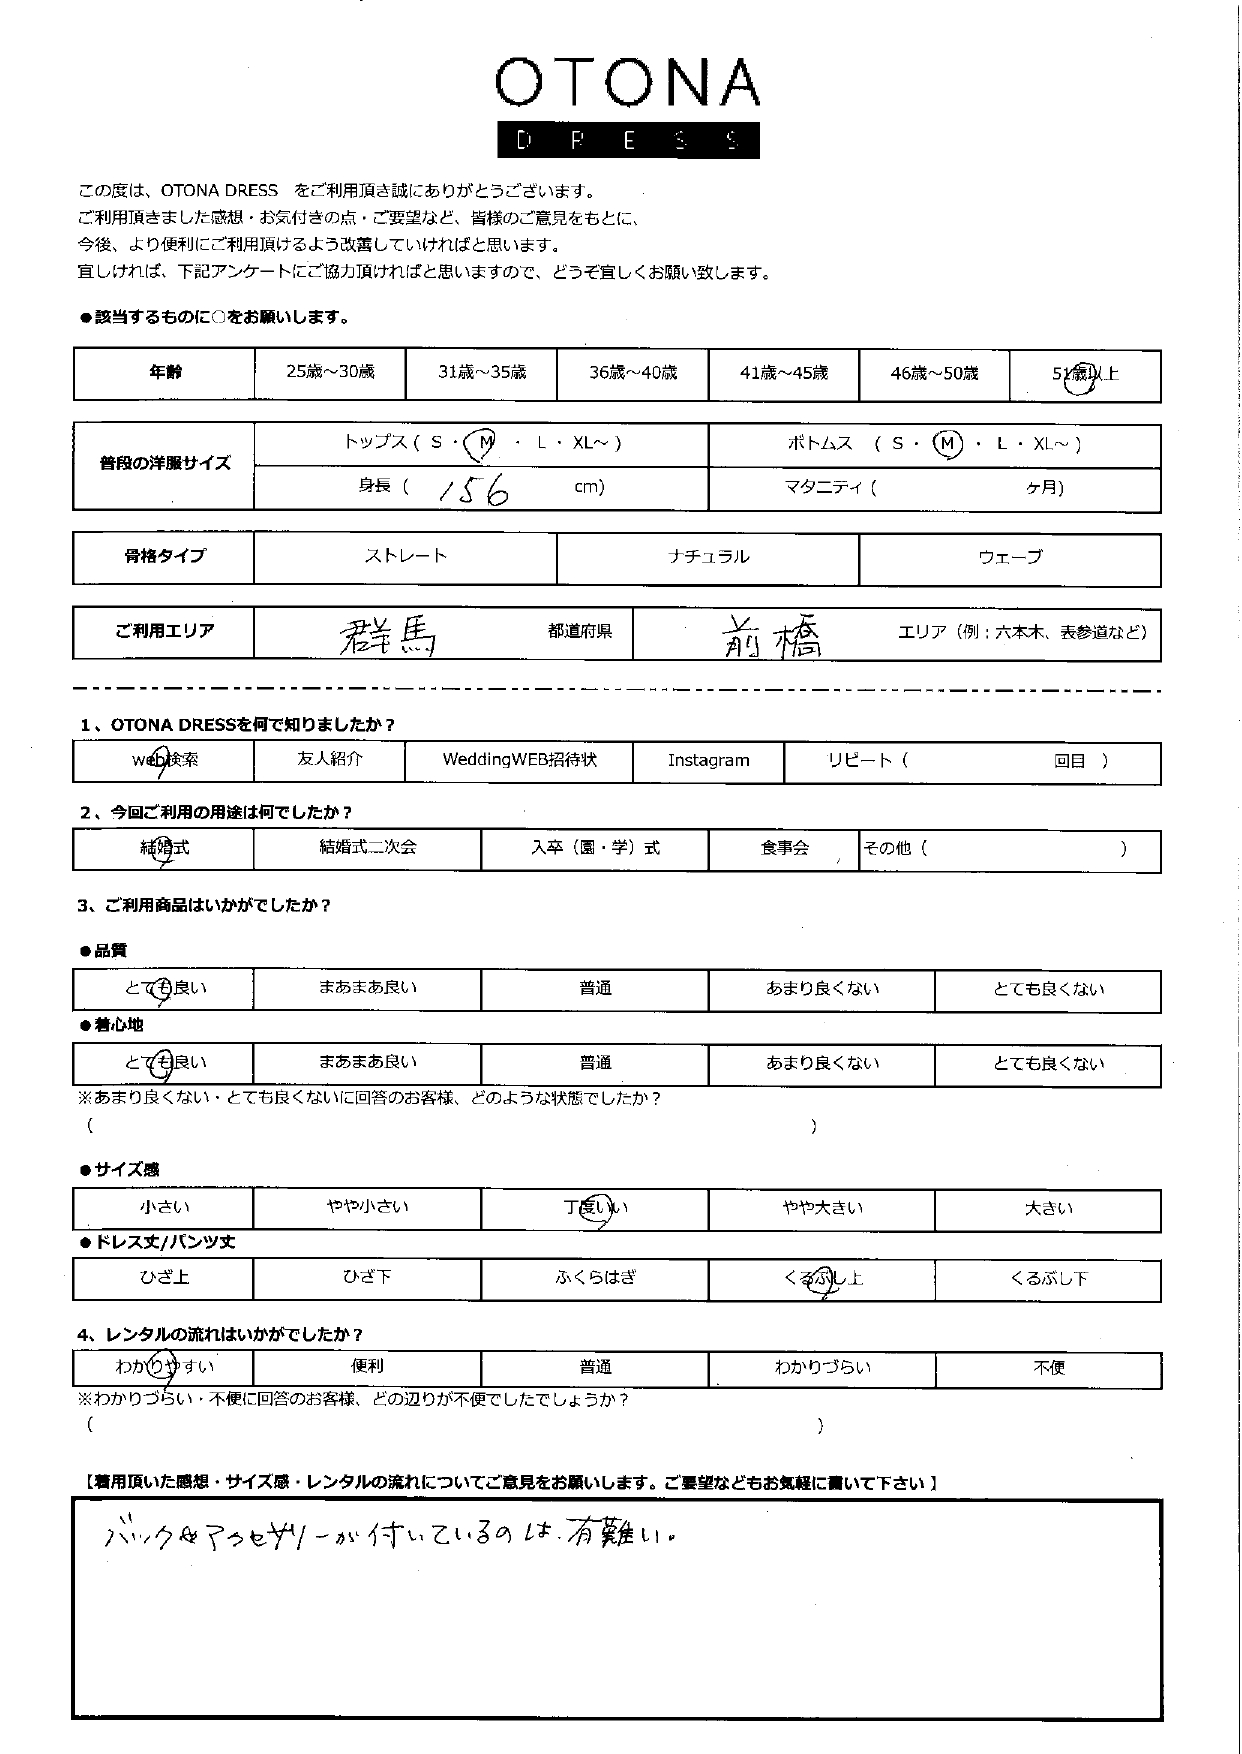 OTONA
DRESS
この度は、OTONA DRESS　をご利用頂き誠にありがとうございます。
ご利用頂きました感想・お気付きの点・ご要望など、皆様のご意見をもとに、
今後、より便利にご利用頂けるよう改善していければと思います。
宜しければ、下記アンケートにご協力頂ければと思いますので、どうぞ宜しくお願い致します。
●該当するものに○をお願いします。
年齢 25歳～30歳 31歳～35歳 36歳～40歳 41歳～45歳 46歳～50歳 51歳以上
普段の洋服サイズ トップス ( S ・ M ・ L ・ XL～ ) ボトムス ( S ・ M ・ L ・ XL～ )
身長 ( 156 cm) マタニティ ( ケ月)
骨格タイプ ストレート ナチュラル ウェーブ
ご利用エリア 群馬 都道府県 前橋 エリア（例：六本木、表参道など）
1、OTONA DRESSを何で知りましたか？
web検索 友人紹介 WeddingWEB招待状 Instagram リピート（ 回目 ）
2、今回ご利用の用途は何でしたか？
結婚式 結婚式二次会 入卒（園・学）式 食事会 その他（ ）
3、ご利用商品はいかがでしたか？
●品質
とても良い まあまあ良い 普通 あまり良くない とても良くない
●着心地
とても良い まあまあ良い 普通 あまり良くない とても良くない
※あまり良くない・とても良くないに回答のお客様、どのような状態でしたか？
( )
●サイズ感
小さい やや小さい 丁度いい やや大きい 大きい
●ドレス丈/パンツ丈
ひざ上 ひざ下 ふくらはぎ くるぶし上 くるぶし下
4、レンタルの流れはいかがでしたか？
わかりやすい 便利 普通 わかりづらい 不便
※わかりづらい・不便に回答のお客様、どの辺りが不便でしたでしょうか？
( )
【着用頂いた感想・サイズ感・レンタルの流れについてご意見をお願いします。ご要望などもお気軽に書いて下さい 】
バックやアクセサリーが付いているのは、有難い。